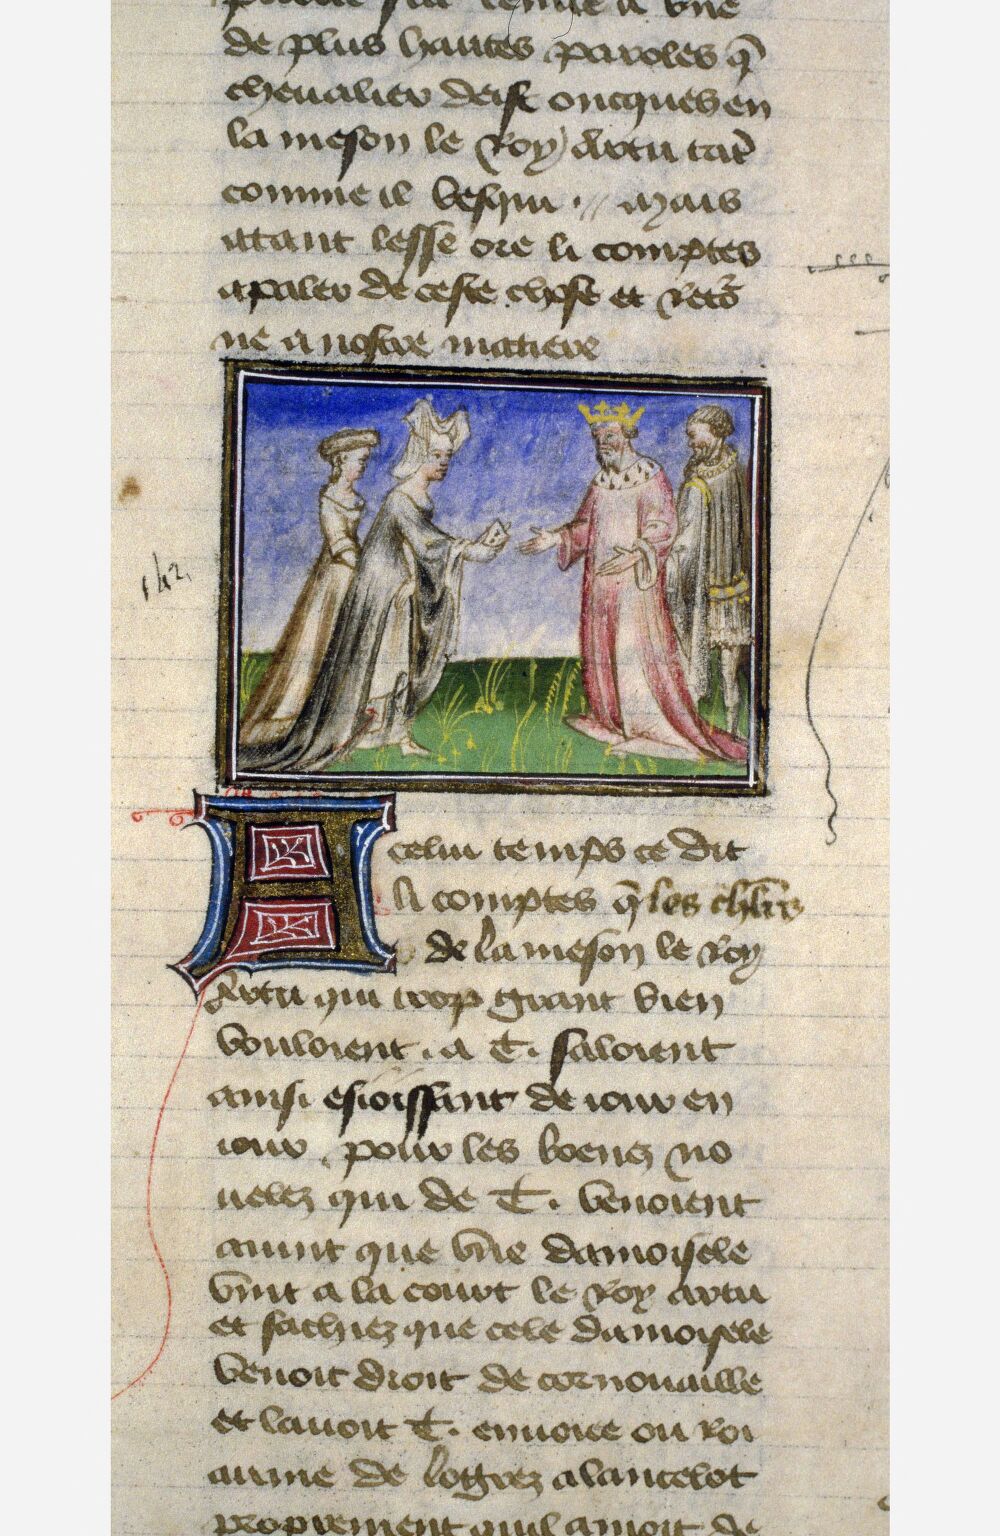 de plus hautes paroles q̃
cheualier deist oncques en
la meson le Roy Artu tãt
comme il vesqui . // Mais
atant lesse ore li comptes
a paler de ceste chose et retõ
ne a nostre matiere
A celui temps ce dit
li comptes q̃ les chl̃rs
de la meson le Roy
Artu qui trop grant bien
vouloient . a T. saloient
ainsi esioissant de iour en
iour . pour les boenez no
uelez qui de T. venoient
auint que vne damoisele
vint a la court le Roy artu
et sachiez que cele damoisele
venoit droit de cornouaille
et lauoit T. enuoiee ou roi
aume de logrez a lancelot
proprement quil amoit de